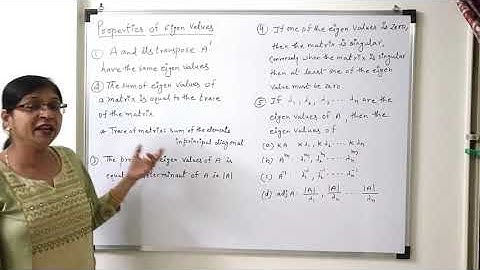 Properties of Eigen Values
① A and its transpose A'
have the same eigen values
② The sum of eigen values of
a matrix is equal to the trace
of the matrix
* Trace of matrix = sum of the elements
in principal diagonal
③ The eigen values of A is
equal determinant of A ie |A|
④ If one of the eigen values is zero,
then the matrix is singular,
Conversely when the matrix is singular
then at least one of the eigen
value must be zero
⑤ If λ₁, λ₂, λ₃ ... λn are the
eigen values of A, then the
eigen values of
(a) KA kλ₁, kλ₂, kλ₃ ... kλn
(b) Aᵐ λ₁ᵐ, λ₂ᵐ ... λnᵐ
(c) A⁻¹ λ₁⁻¹, λ₂⁻¹ ... λn⁻¹
(d) adj A |A|/λ₁, |A|/λ₂ ... |A|/λn